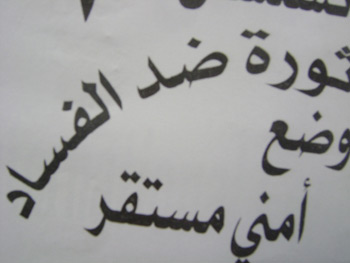 ثورة ضد الفساد
وضع
أمني مستقر